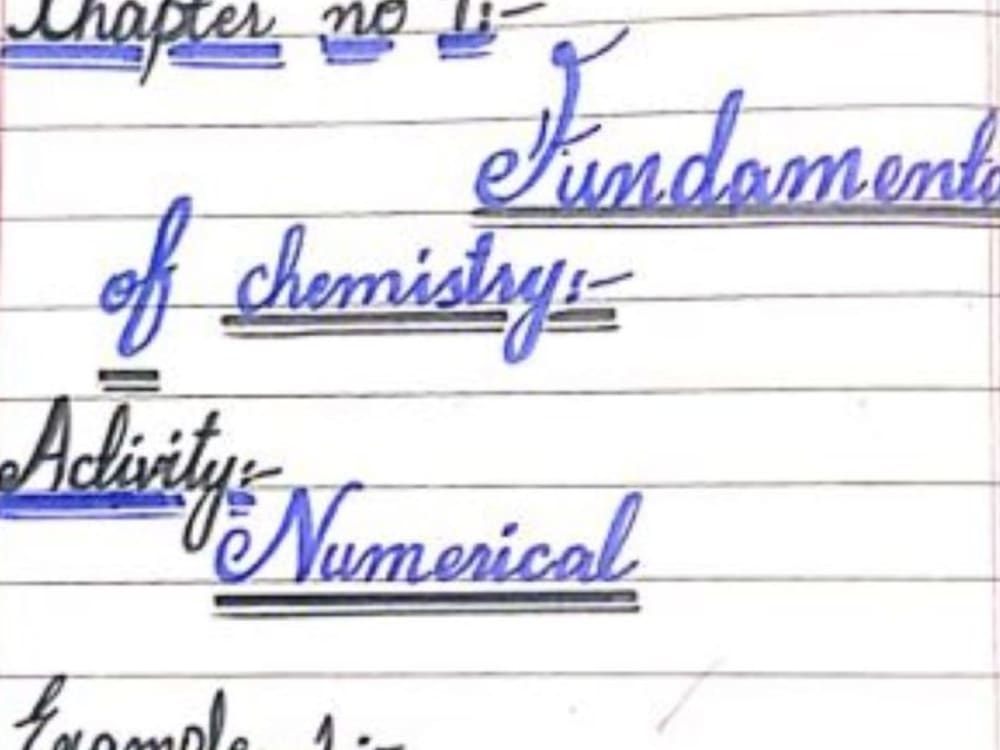 Chapter no 1:-
Fundamenta
of chemistry:-
Activity:-
Numerical
Example 1:-